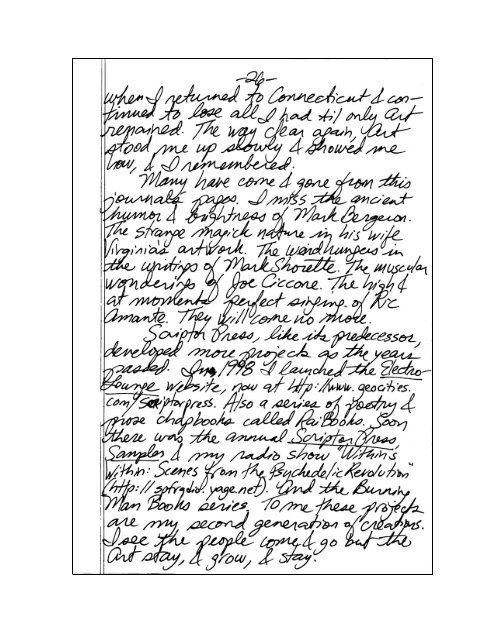 -26-
when I returned to Connecticut & con-
tinued to lose all I had til only Art
remained. The way clear again, Art
stood me up slowly & showed me
how, & I remembered.
Many have come & gone from this
journal's pages. I miss the ancient
humor & brightness of Mark Bergeron.
The strange magick nature in his wife
Virginia's artwork. The word hungers in
the writings of Mark Shorette. The muscular
wonderings of Joe Ciccone. The high &
at moments perfect singing of Ric
Amante. They will come no more.
Scriptor Press, like its predecessor,
developed more projects as the years
passed. In 1998 I launched the Electro-
Lounge website, now at http://www.geocities.
com/scriptorpress. Also a series of poetry &
prose chapbooks called RaiBooks. Soon
there was the annual Scriptor Press
Sampler & my radio show "Within's
Within: Scenes from the Psychedelic Revolution"
(http://spfradio.yage.net). And the Burning
Man Books series. To me these projects
are my second generation of creations.
I see the people come & go but the
Art stay, & grow, & stay.